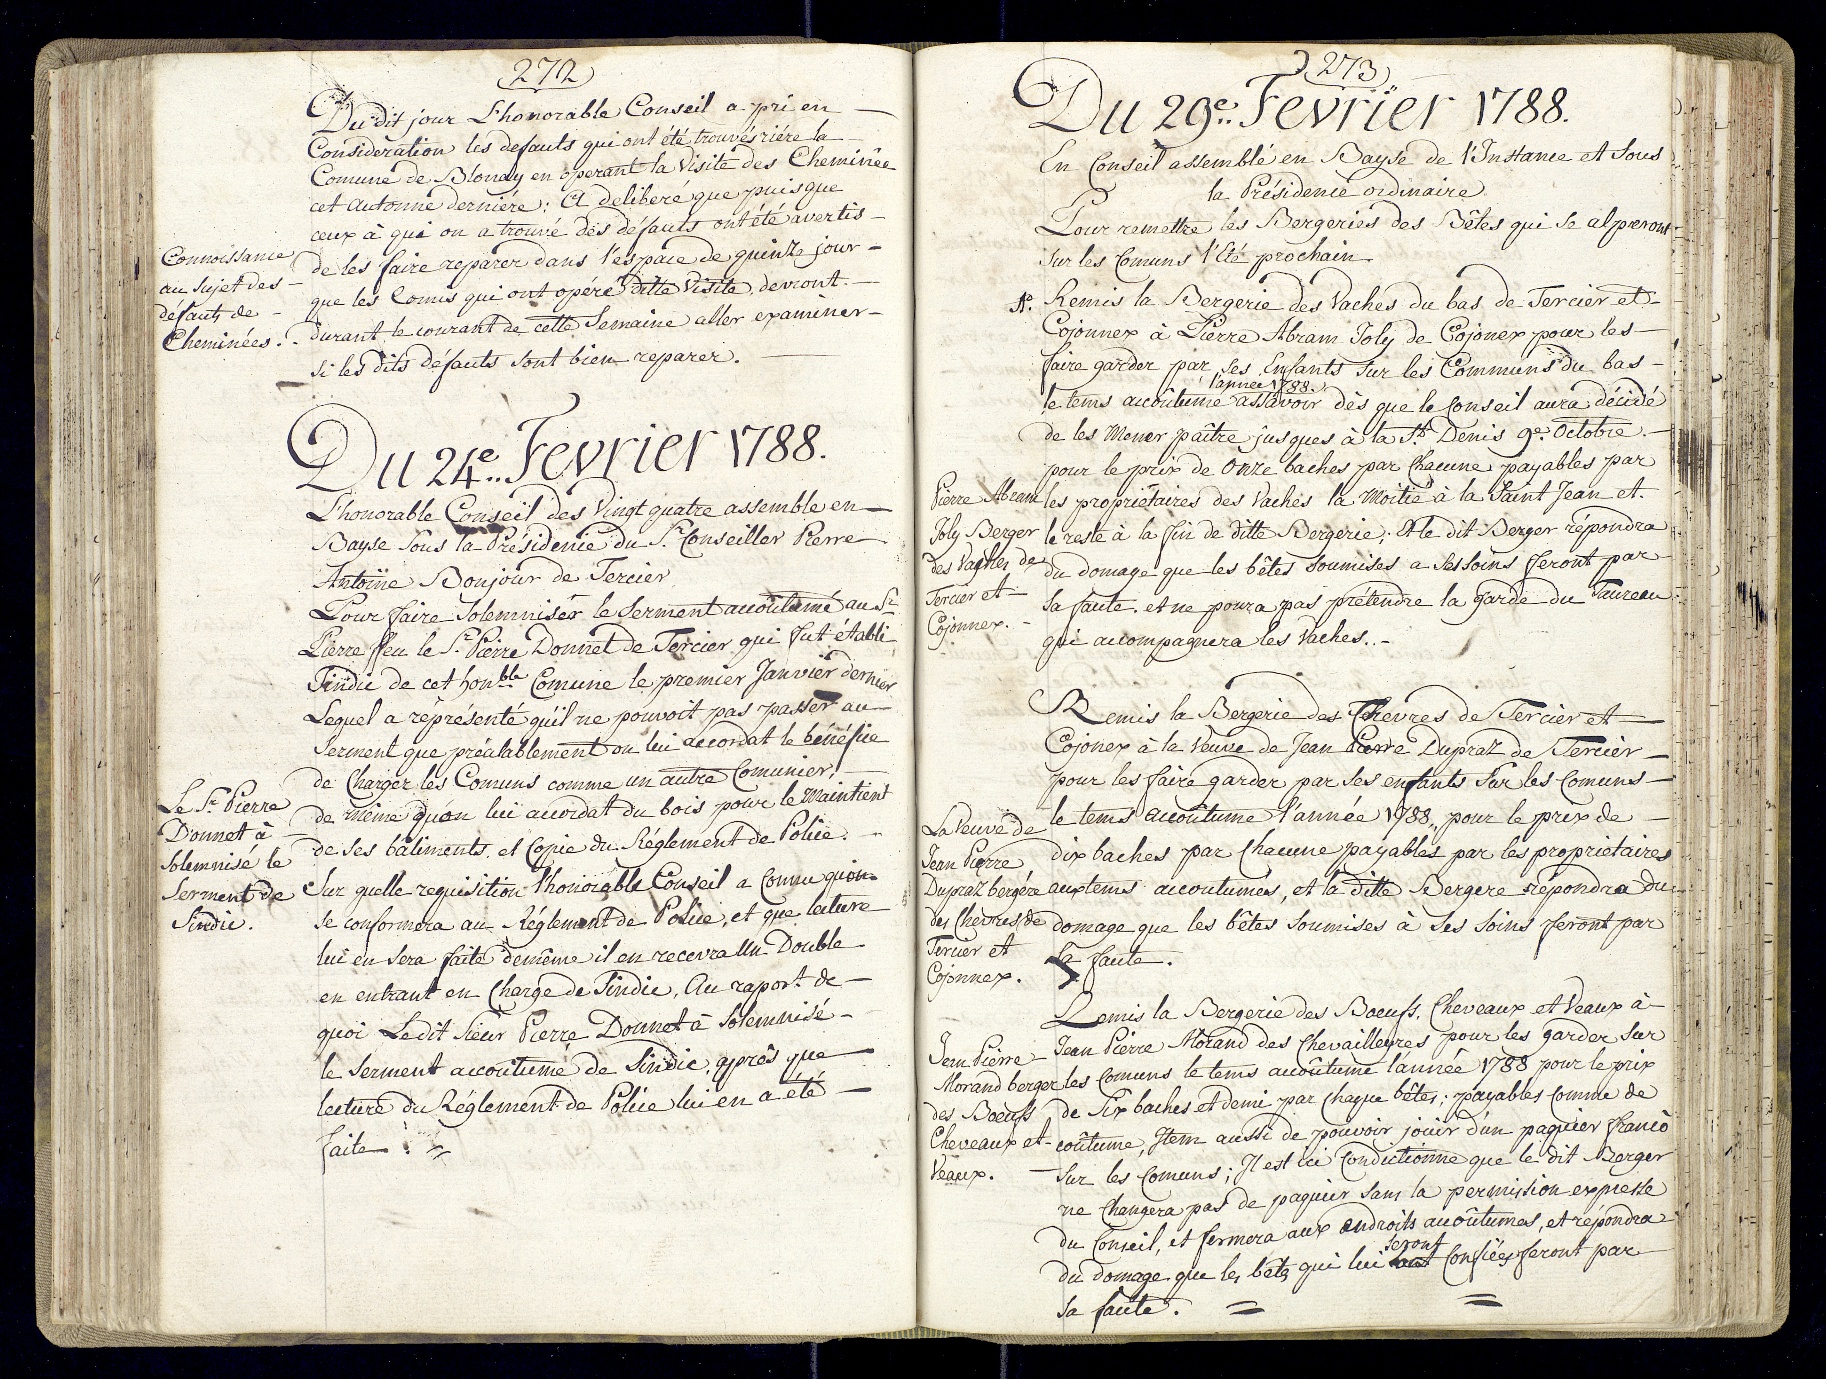 272
Du dit jour L'honorable Conseil a pri en
Considèration les défauts qui ont été trouvés riére la
Comune de Blonay en operant la Visite des Cheminée
cet Automne derniére : A deliberé que puisque
ceux à qui on a trouvé des défauts ont été avertis
de les faire reparer dans l'espace de quinze jour
que les Comis qui ont opéré ditte Visite, devront
durant le courant de cette Semaine aller examiner
si les dits défauts sont bien reparer.
Connoissance
au Sujet des
défauts de
Cheminées.
Du 24e. Fevrier 1788.
L'honorable Conseil des Vingt quatre assemble en
Bayse Sous la Présidence du Sr. Conseiller Pierre
Antoine Bonjour de Tercier
Pour faire Solemniser le Serment accoûtumé au Sr.
Pierre ffeu le Sr. Pierre Donnet de Tercier qui fut établi
Sindic de cet honble Comune le premier Janvier dernier
Lequel a réprésenté qu'il ne pouvoit pas passer au
Serment que préalablement on lui accordat le bénéfice
de Charger les Comuns comme un autre Comunier,
de même qu'on lui accordat du bois pour le Maintient
de ses bâtiments, et Copie du Réglement de Police.
Sur quelle requisition l'honorable Conseil a Connu qu'on
se conformera au Réglement de Police, et que lecture
lui en sera faite de même il en recevra Un Double
en entrant en Charge de Sindic, Au raport de
quoi Le dit Sieur Pierre Donnet à Solemnisé
le Serment accoutumé de Sindic, après que
lecture du Réglement de Police lui en a été
faite.
Le Sr. Pierre
Donnet à
Solemnisé le
Serment de
Sindic.
273
Du 29e. Fevrier 1788.
En Conseil assemblé en Bayse de l'Instance et Sous
la Présidence ordinaire
Pour remettre les Bergeries des Bêtes qui se alperont
Sur les Comuns l'Eté prochain
Remis la Bergerie des Vaches du bas de Tercier et
Cojonnex à Pierre Abram Joly de Cojonex pour les
faire garder par ses Enfants Sur les Communs du bas
l'année 1788.
le tems accoûtumé assavoir dès que le Conseil aura décidé
de les Mener paître jusques à la St. Denis 9e. Octobre.
pour le prix de Onze baches par Chacune payables par
les propriétaires des Vaches la Moitié à la Saint Jean et
le reste à la fin de ditte Bergerie, Et le dit Berger répondra
du domage que les bêtes soumises a ses soins feront par
sa faute, et ne poura pas prétendre la garde du Taureau
qui accompagnera les Vaches.
Pierre Abram
Joly Berger
des Vaches de
Tercier et
Cojonnex.
Remis la Bergerie des Chevres de Tercier et
Cojonex à la Veuve de Jean Pierre Dupraz de Tercier
pour les faire garder par ses enfants Sur les Comuns
le tems accoûtumé l'année 1788., pour le prix de
dix baches par Chacune payables par les propriétaires
aux tems accoutumés, et la ditte Bergere répondra du
domage que les bêtes Soumises à ses soins feront par
sa faute.
La Veuve de
Jean Pierre
Dupraz bergére
des Chevres de
Tercier et
Cojonnex.
Remis la Bergerie des Boeufs, Cheveaux et Veaux à
Jean Pierre Morand des Chevailleyres pour les garder Sur
les Comuns le tems accoûtumé l'année 1788 pour le prix
de Six baches et demi par Cheque bêtes ; payables Comme de
coûtume, Item aussi de pouvoir jouir d'un paquier franco
Sur les Comuns ; Il est ici Condictionné que le dit Berger
ne Changera pas de paquier sans la permission expresse
du Conseil, et fermera aux endroits accoûtumes, et répondra
seront
du domage que les bêtes qui lui Confiées feront par
sa faute.
Jean Pierre
Morand berger
des Boeufs
Cheveaux et
Veaux.